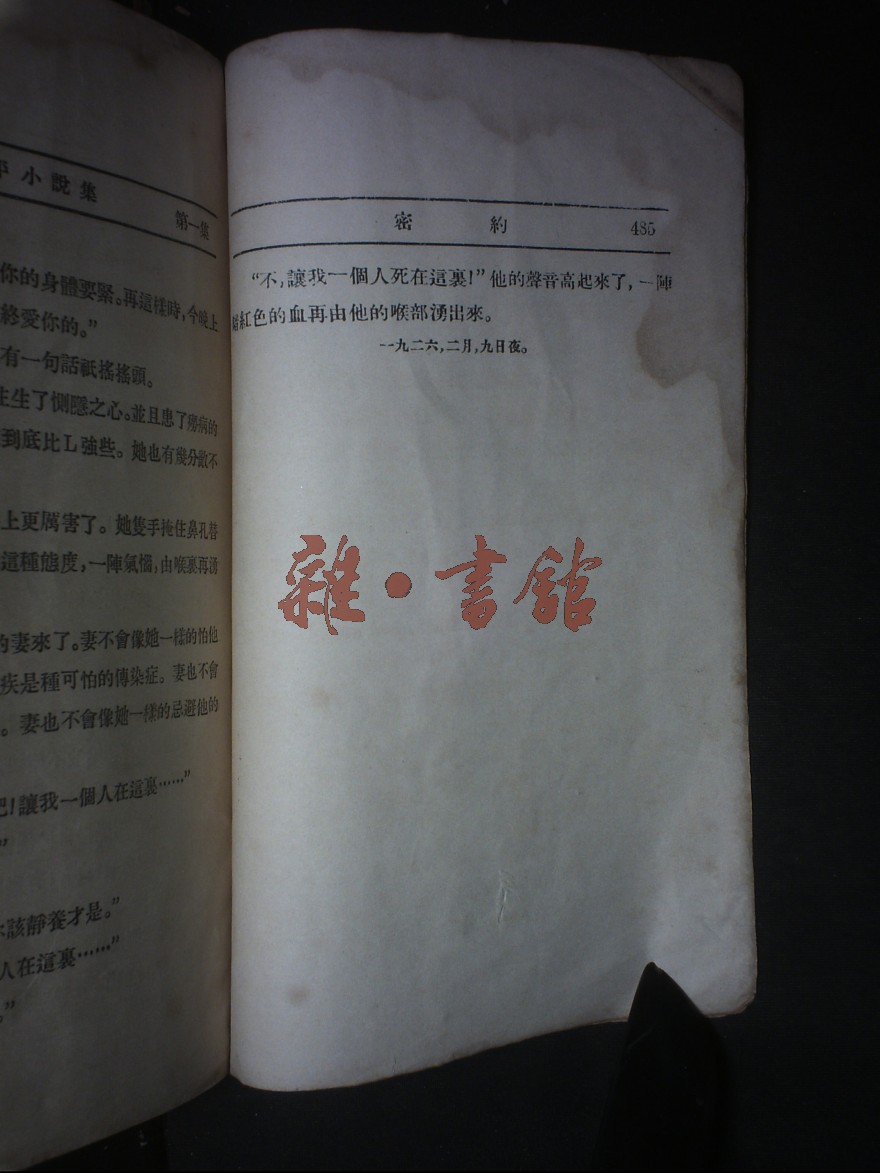 小說集
第一集
你的身體要緊。再這樣時,今晚上
終愛你的。”
有一句話祇搖搖頭。
生了惻隱之心。並且患了癆病的
到底比L強些。她也有幾分敵不
上更厲害了。她雙手掩住鼻孔替
這種態度,一陣氣惱,由喉裏再湧
的妻來了。妻不會像她一樣的怕他
疾是種可怕的傳染症。妻也不會
。妻也不會像她一樣的忌避他的
吧!讓我一個人在這裏……”
”
該靜養才是。”
人在這裏……”
。”
密 約 485
“不,讓我一個人死在這裏!”他的聲音高起來了,一陣
紅色的血再由他的喉部湧出來。
一九二六,二月,九日夜。
雜·書館